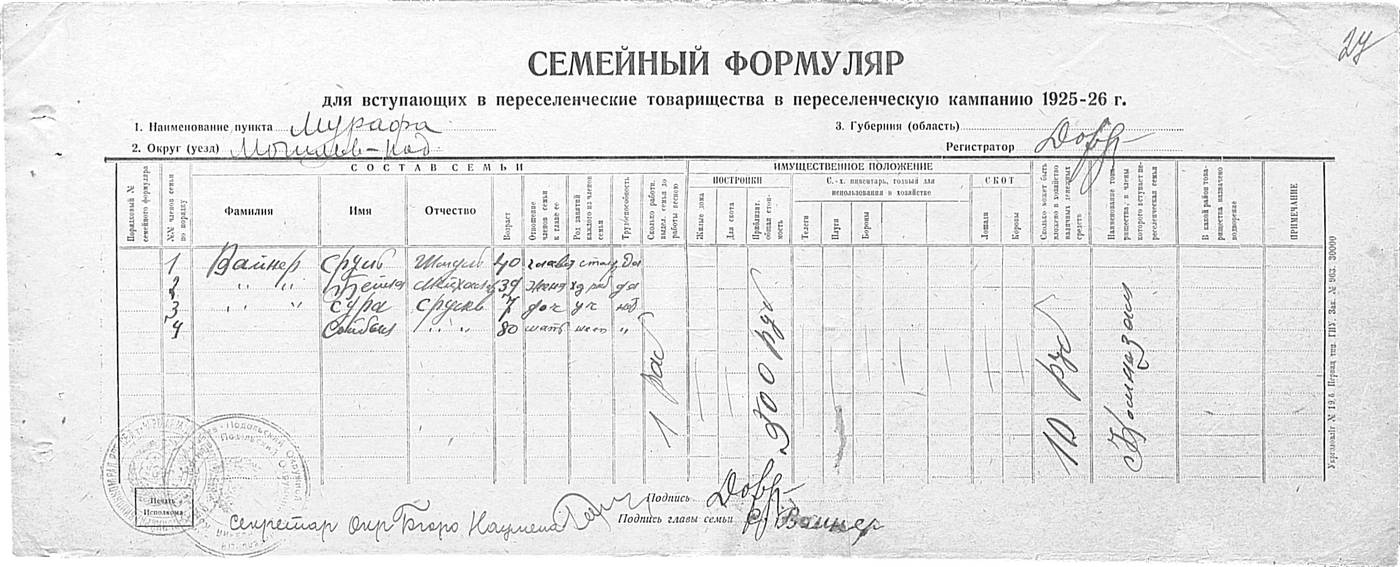 27
СЕМЕЙНЫЙ ФОРМУЛЯР
для вступающих в переселенческие товарищества в переселенческую кампанию 1925-26 г.
1. Наименование пункта Мурафа
3. Губерния (область)
2. Округ (уезд) Могилев-Под
Регистратор
СОСТАВ СЕМЬИ
ИМУЩЕСТВЕННОЕ ПОЛОЖЕНИЕ
ПОСТРОЙКИ
С.-х. инвентарь, годный для использования в хозяйстве
СКОТ
Порядковый № семейного формуляра
№№ членов семьи по порядку
Фамилия
Имя
Отчество
Возраст
Отношение членов семьи к главе ее
Род занятий каждого из членов семьи
Трудоспособность
Сколько работн. выдел. семья до работы весною
Жилые дома
Для скота
Приблизит. общая стоимость
Телеги
Плуги
Бороны
Лошади
Коровы
Сколько может быть вложено в хозяйство наличных денежных средств
Наименование товарищества, в члены которого вступает переселенческая семья
В какой район товарищества назначено водворение
ПРИМЕЧАНИЕ
1 Вайнер Сруль Шмуль 40 глава да
2 " " Михель 39 жена да
3 " " Сура Сруль 7 доч уч нет
4 " " 80 мать "
1 раб
300 руб
10 руб
Печать Исполкома
Секретар Окр Бюро Нацмена
Подпись
Подпись главы семьи С. Вайнер